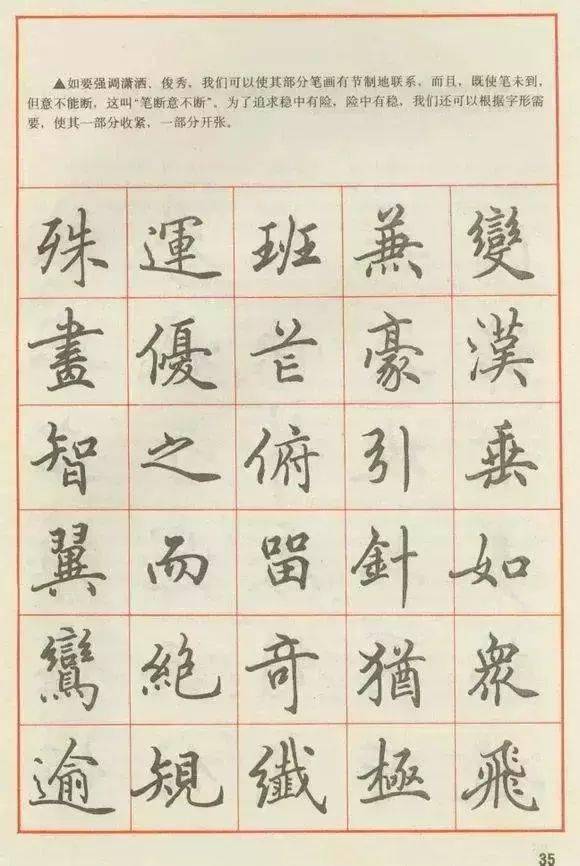 ▲如要强调潇洒、俊秀，我们可以使其部分笔画有节制地联系，而且，既使笔未到，
但意不能断，这叫“笔断意不断”。为了追求稳中有险，险中有稳，我们还可以根据字形需
要，使其一部分收紧，一部分开张。
變漢垂如衆飛
兼豪引針猶極
班芒俯留奇纖
運優之而絕規
殊畫智翼鸞逾
35